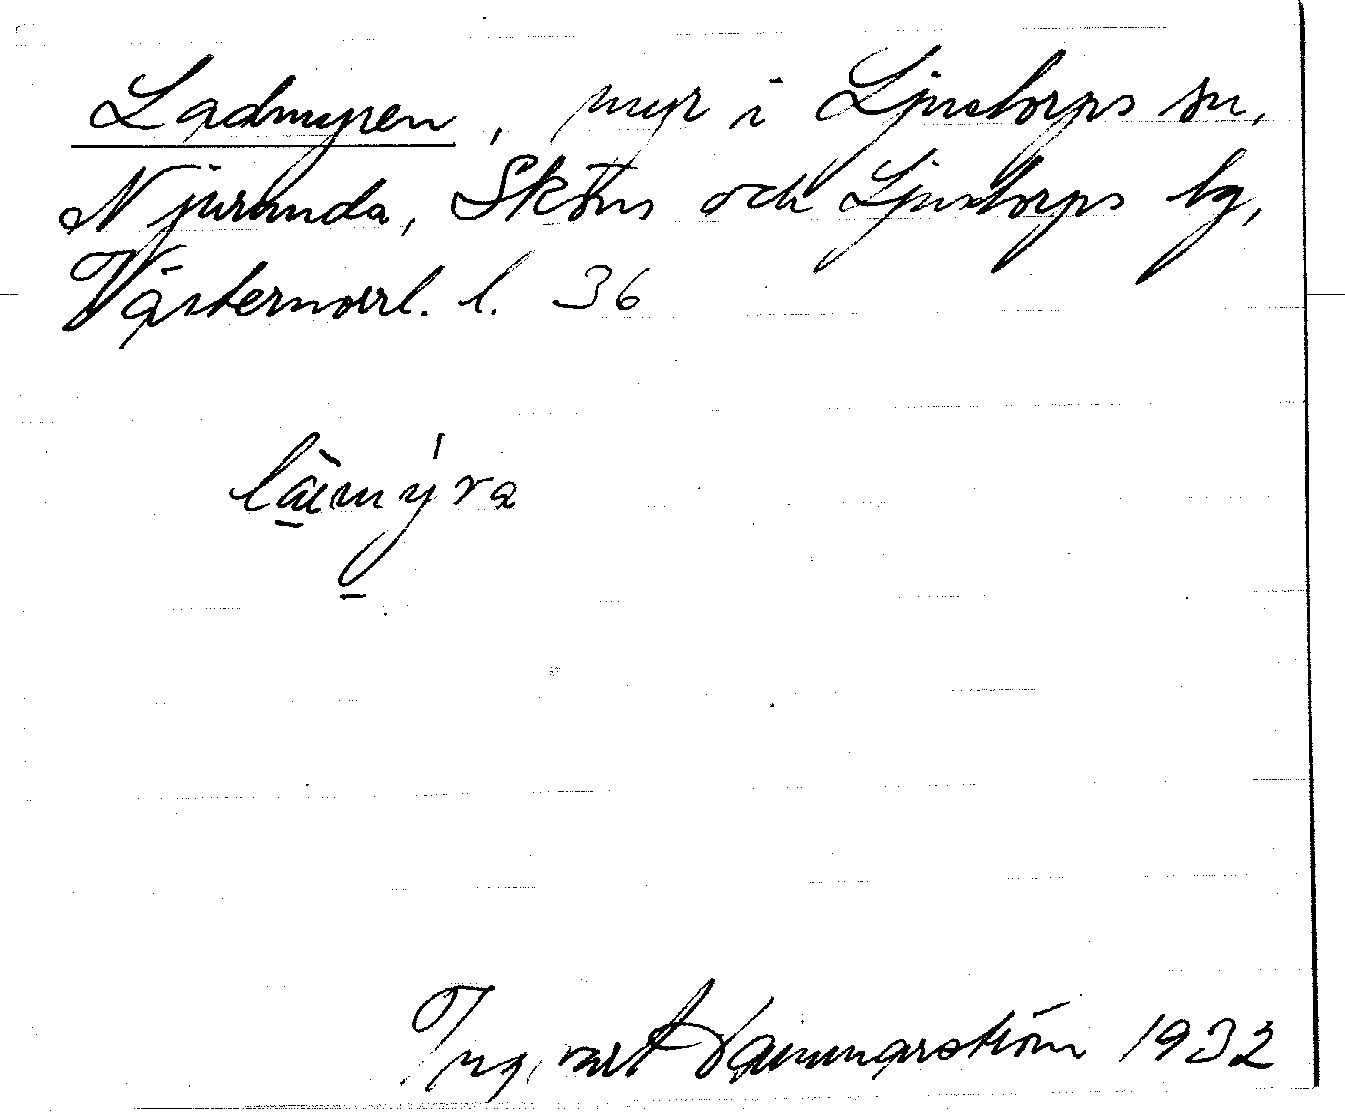 Ladmyren, myr i Ljustorps sn,
Njurunda, Sköns och Ljustorps tg,
Västernorrl. l. 36
Ingvart Hammarström 1932